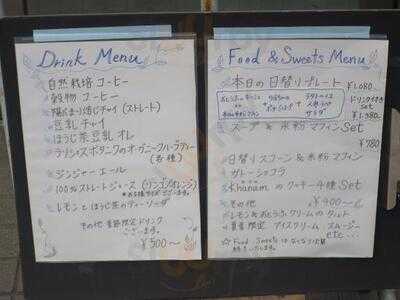 Drink Menu
自然栽培 コーヒー
穀物 コーヒー
チャイ (ストレート)
豆乳 チャイ
ほうじ茶豆乳 オレ
ボタニクのオーガニックハーブティー
(各種)
ジンジャー エール
100%ストレートジュース (リンゴ オレンジ)
レモンとほうじ茶のティーソーダ
その他 季節限定ドリンク
ございます。
¥500〜
Food & Sweets Menu
本日の日替りプレート ¥1,080
ドリンク付き
¥1,380
サラダ
スープ & 米粉マフィン Set
¥780
日替りスコーン & 米粉マフィン
ガトーショコラ
のクッキー4種 Set
その他 ¥400〜
レモンとおとうふクリームのタルト
夏季限定 アイスクリーム スムージー
etc...
☆ Food Sweets はなくなり次第